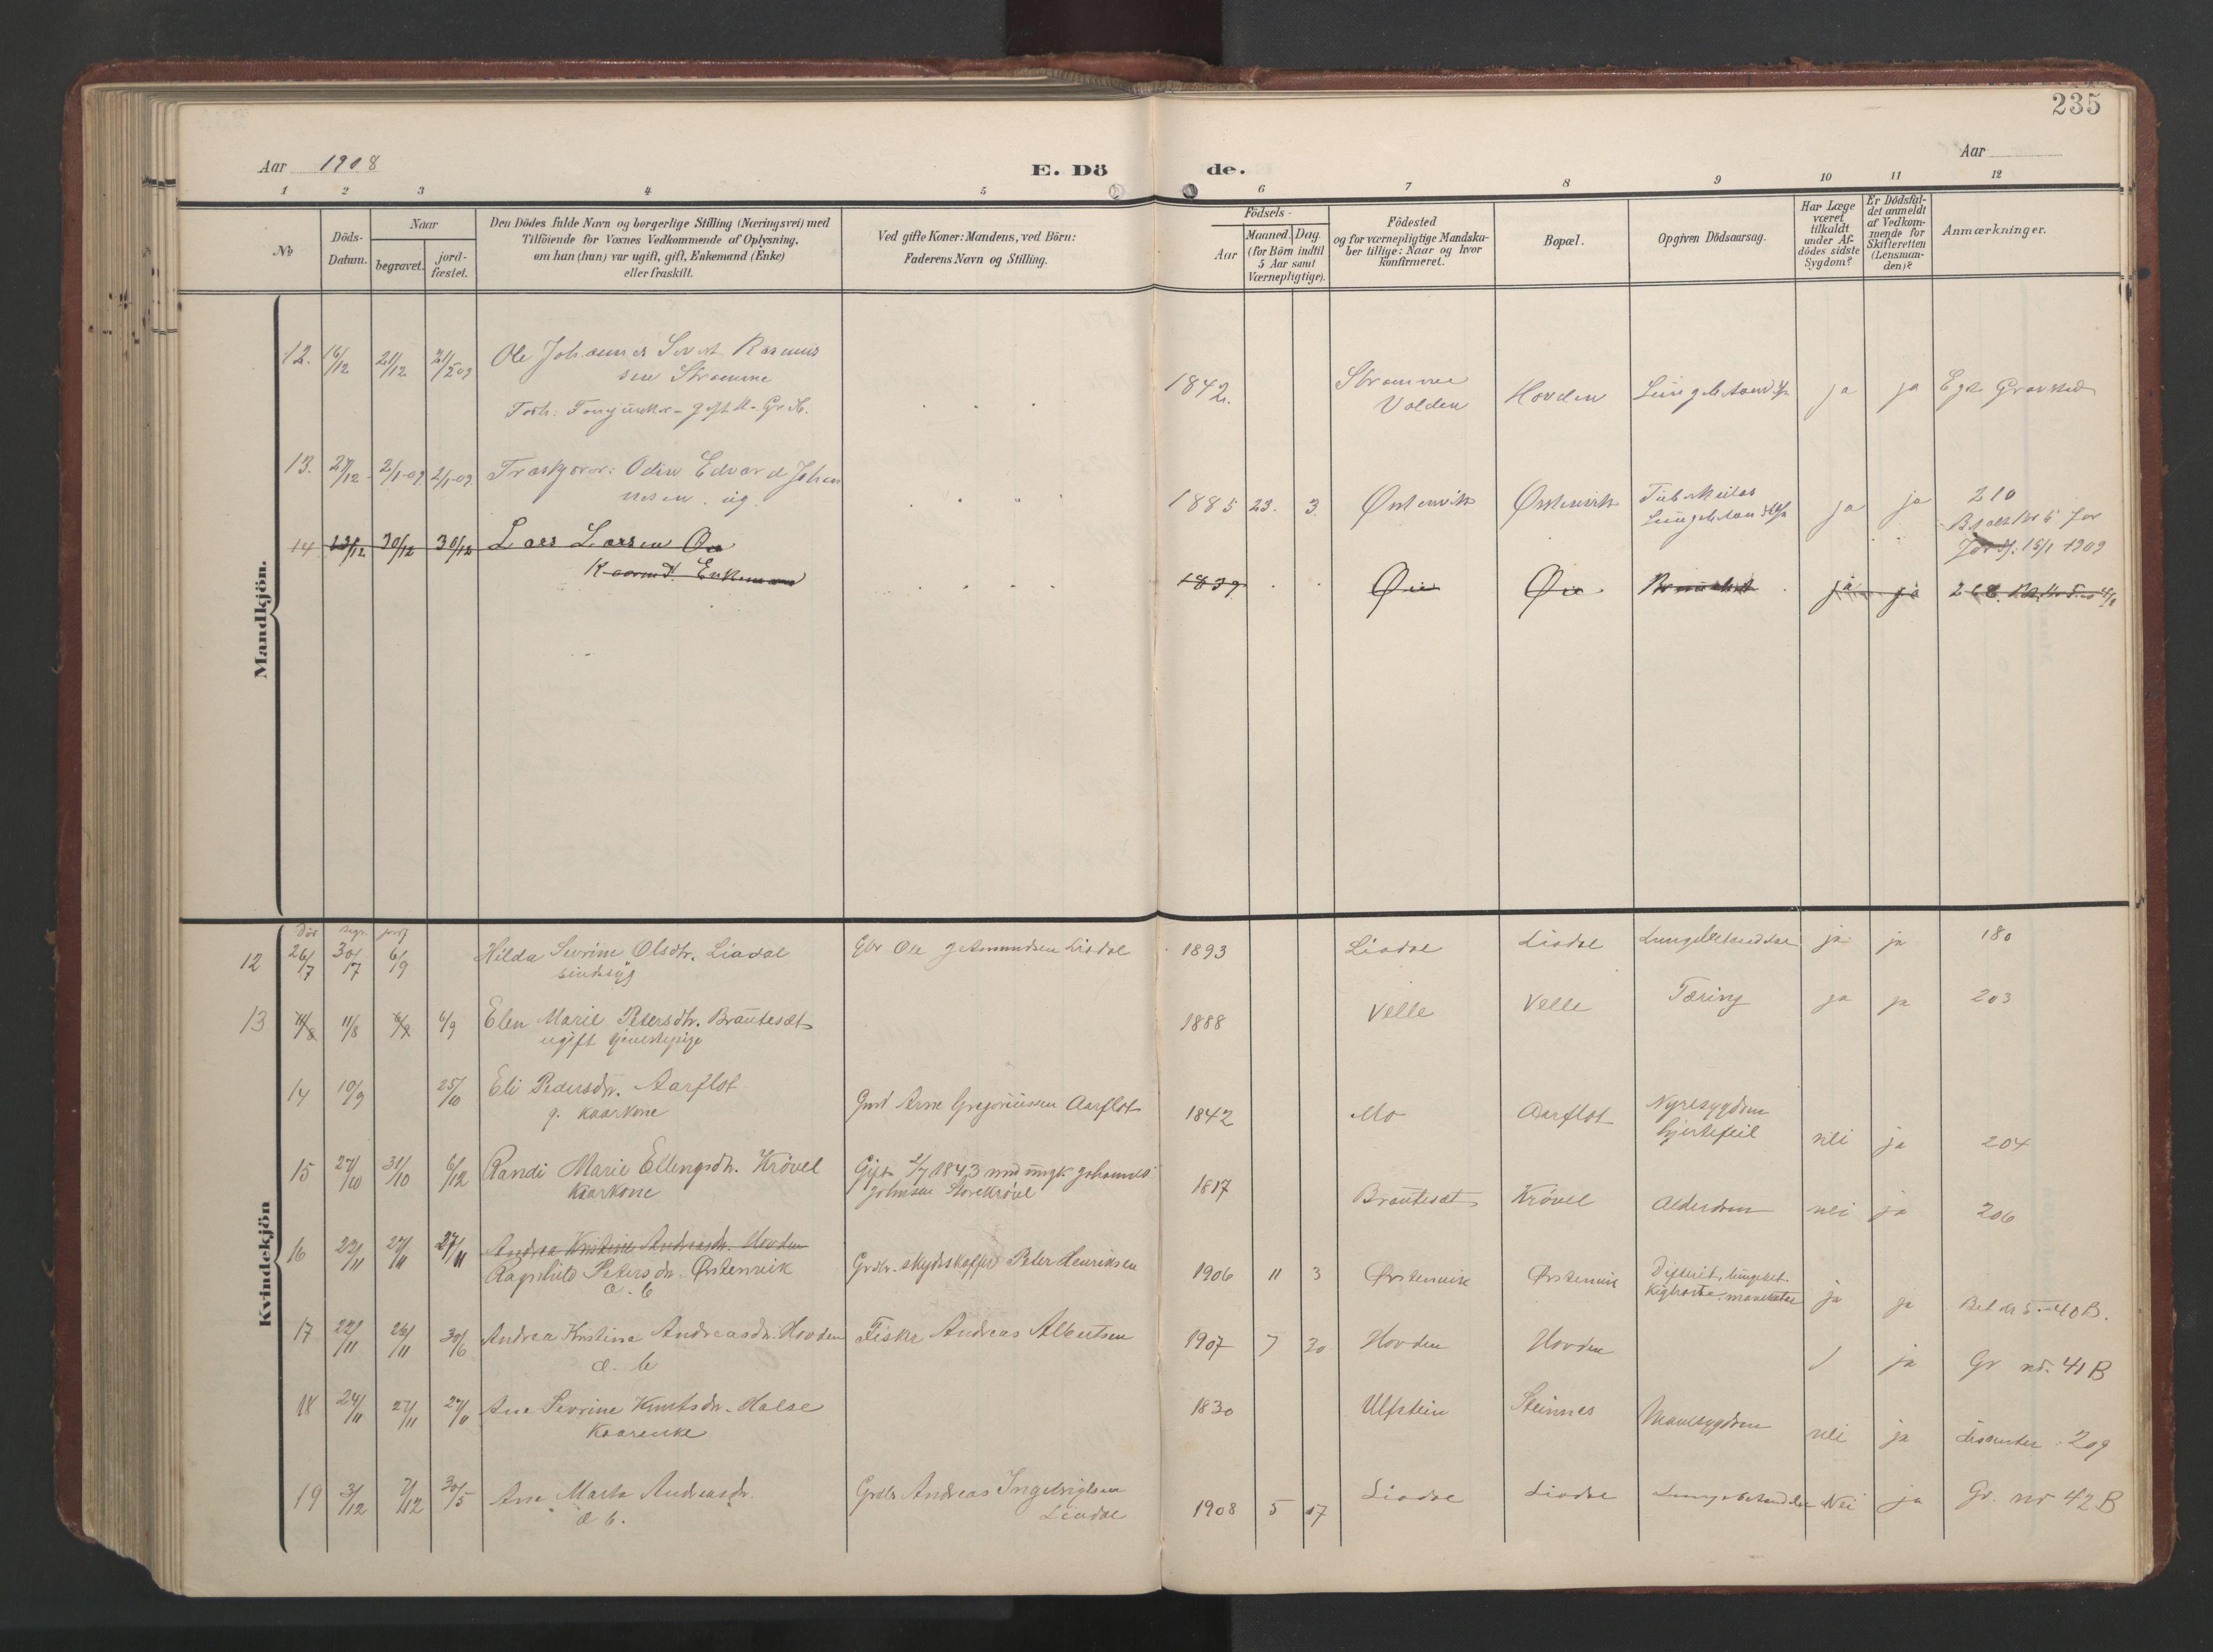 235
Aar 1908
E. Dö de.
Aar
1 2 3 4 5 6 7 8 9 10 11 12
No
Döds-
Datum.
Naar
begravet.
jord-
fæstet.
Den Dödes fulde Navn og borgerlige Stilling (Næringsvei) med
Tilföiende for Voxnes Vedkommende af Oplysning,
om han (hun) var ugift, gift, Enkemand (Enke)
eller fraskilt.
Ved gifte Koner: Mandens, ved Börn:
Faderens Navn og Stilling.
Födsels-
Aar
Maaned. Dag.
(for Börn indtil
5 Aar samt
Værnepligtige).
Födested
og for værnepligtige Mandska-
ber tillige: Naar og hvor
konfirmeret.
Bopæl.
Opgiven Dödsaarsag.
Har Læge
været
tilkaldt
under Af-
dödes sidste
Sygdom?
Er Dödsfal-
det anmeldt
af Vedkom-
mende for
Skifteretten
(Lensman-
den)?
Anmærkninger.
Mandkjön.
12. 16/12 21/12 21/2 09 Ole Johannes Sivert Rasmus
sen Strømme
gift
1842 Strømme
Volden Hovden ja ja Egt Gravsted
13. 27/12 2/1-09 2/1-09 Odin Edvard Johan
nesen. ug.
1885 23. 3. Ørstenvik Ørstenvik Tuberkuløs ja ja 210
15/1 1909
14 13/12 30/12 30/12 Lars Larsen
Kaarmd. Enkemand
1839 Øie Øie ja ja
Kvindekjön
12 26/7 30/7 6/9 Hilda Sevrine Olsdtr. Liadal
sindsyg
Gbr Ole Liadal 1893 Liadal Liadal Lungebetændelse ja ja 180
13 11/8 6/9 Elen Marie Petersdtr. Brautesæt
ugift tjenestepige
1888 Velle Velle Tæring ja ja 203
14 10/9 25/10 Eli Pedersdtr. Aarflot
g. Kaarkone
Arne Gregoriussen Aarflot 1842 Mo Aarflot Nyresygdom
hjertefeil nei ja 204
15 27/10 31/10 6/12 Randi Marie Ellengsdtr. Krövel
Kaarkone
Gift 2/7 1843 med ungk. Johannes
Johnsen Storekrövel
1817 Brautesæt Krövel Alderdom nei ja 206
16 22/11 27/11 27/11 Andrea Kristine Andreasdr. Hovden
Ragnhild Petersdr. Ørstenvik
æ. b
Peter Henriksen 1906 11 3 Ørstenvik Ørstenvik Difterit, lungebet.
ja ja 40 B.
17 22/11 26/11 30/6 Andrea Kristine Andreasdr. Hovden
æ. b
Fisker Andreas Albertsen 1907 7 20 Hovden Hovden ja Gr nr. 41 B
18 24/11 27/11 27/11 Ane Sevrine Knutsdr. Halse
Kaarenke
1830 Ulfstein Steinnes Mavesygdom nei ja dissenter. 209
19 3/12 7/12 30/5 Ane Marta Andreasdr.
æ b.
Grdbr Andreas Ingebrigtsen
Liadal
1908 5 17 Liadal Liadal Lungebetændelse Nei ja Gr. nr 42 B